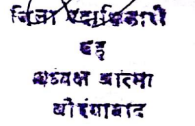 जिला पदाधिकारी
सह
अध्यक्ष आत्मा
औरंगाबाद